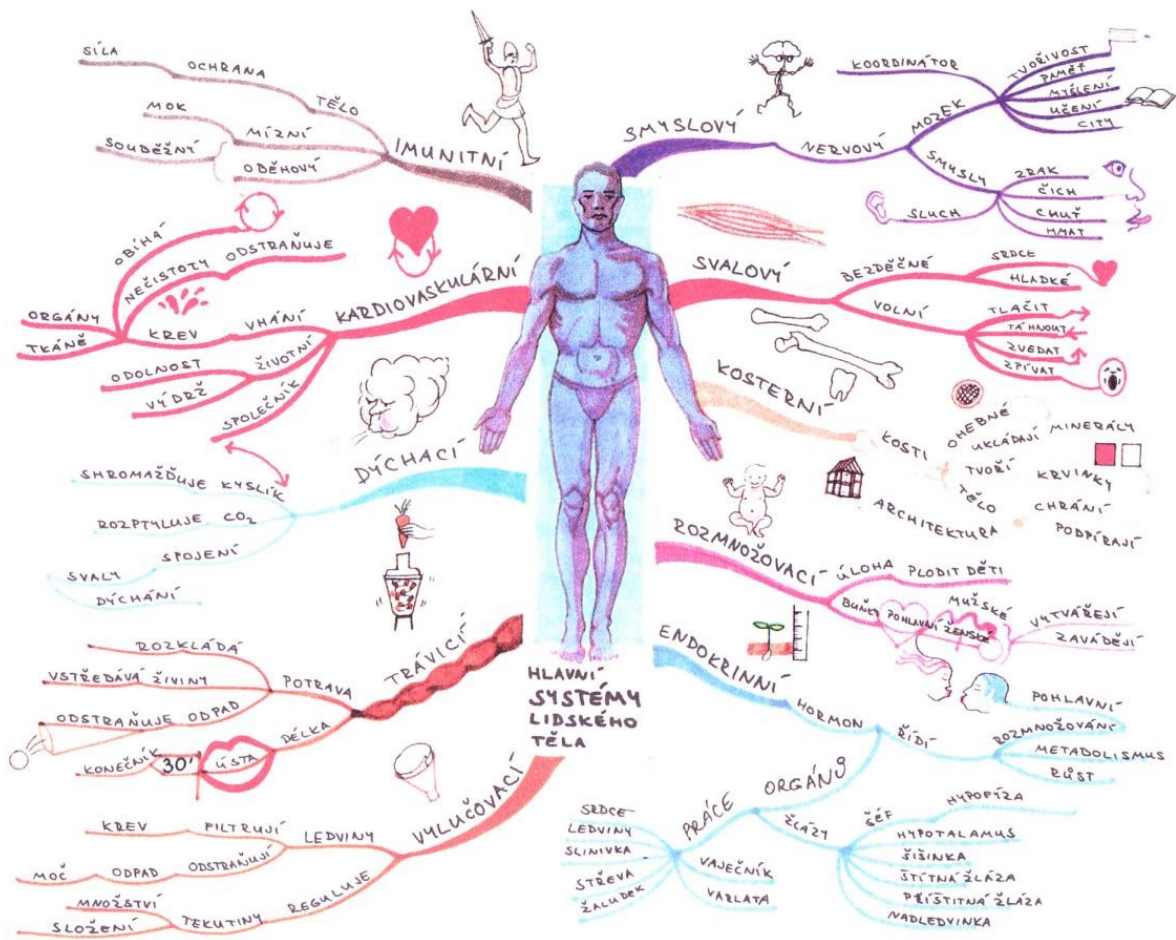 HLAVNÍ
SYSTÉMY
LIDSKÉHO
TĚLA
IMUNITNÍ
TĚLO
OCHRANA
SÍLA
MÍZNÍ
MOK
ODĚHOVÝ
SOUDĚŽNÝ
KARDIOVASKULÁRNÍ
VHÁNÍ
KREV
OBÍHÁ
NEČISTOTY
ODSTRAŇUJE
ORGÁNY
TKÁNĚ
ŽIVOTNÍ
ODOLNOST
VÝDRŽ
SPOLEČNÍK
DÝCHACÍ
SHROMAŽĎUJE KYSLÍK
ROZPTYLUJE CO2
SPOJENÍ
SVALY
DÝCHÁNÍ
TRÁVICÍ
POTRAVA
ROZKLÁDÁ
VSTŘEDÁVÁ ŽIVINY
ODSTRAŇUJE ODPAD
DÉLKA
ÚSTA
30'
KONEČNÍK
VYLUČOVACÍ
LEDVINY
FILTRUJÍ
KREV
ODSTRAŇUJÍ
ODPAD
MOČ
REGULUJE
TEKUTINY
MNOŽSTVÍ
SLOŽENÍ
SMYSLOVÝ
NERVOVÝ
MOZEK
KOORDINÁTOR
TVOŘIVOST
PAMĚŤ
MYŠLENÍ
UČENÍ
CITY
SMYSLY
ZRAK
ČICH
CHUŤ
HMAT
SLUCH
SVALOVÝ
BEZDĚČNÉ
SRDCE
HLADKÉ
VOLNÍ
TLAČIT
TÁHNOUT
ZVEDAT
ZPÍVAT
KOSTERNÍ
KOSTI
OHEBNÉ
UKLÁDAJÍ
MINERÁLY
TVOŘÍ
KRVINKY
TĚLO
CHRÁNÍ
PODPÍRAJÍ
ARCHITEKTURA
ROZMNOŽOVACÍ
ÚLOHA
PLODIT DĚTI
BUŇKY
POHLAVNÍ
MUŽSKÉ
ŽENSKÉ
VYTVÁŘEJÍ
ZAVÁDĚJÍ
ENDOKRINNÍ
HORMON
ŘÍDÍ
POHLAVNÍ
ROZMNOŽOVÁNÍ
METABOLISMUS
RŮST
ORGÁNŮ
PRÁCE
SRDCE
LEDVINY
SLINIVKA
STŘEVA
ŽALUDEK
VAJEČNÍK
VARLATA
ŽLÁZY
ŠÉF
HYPOFÝZA
HYPOTALAMUS
ŠIŠINKA
ŠTÍTNÁ ŽLÁZA
PŘÍŠTITNÁ ŽLÁZA
NADLEDVINKA